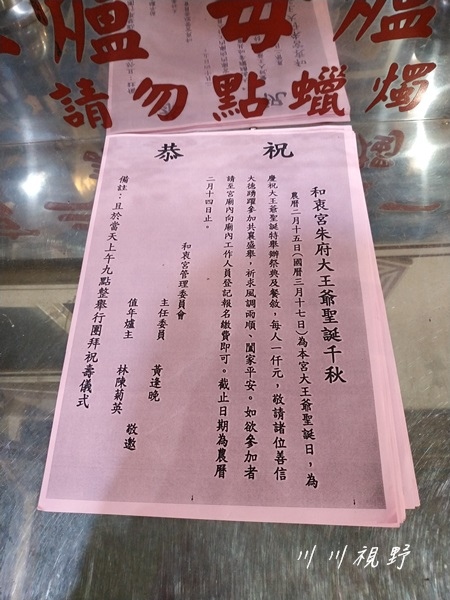 請勿點蠟燭
恭祝
和衷宮朱府大王爺聖誕千秋
農曆二月十五日(國曆三月十七日)為本宮大王爺聖誕日,為
慶祝大王爺聖誕特舉辦祭典及餐敘,每人一仟元,敬請諸位善信
大德踴躍參加共襄盛舉,祈求風調雨順、闔家平安。如欲參加者
請至宮廟內向廟內工作人員登記報名繳費即可。截止日期為農曆
二月十四日止。
和衷宮管理委員會
主任委員 黃逢晚
值年爐主 林陳菊英 敬邀
備註:且於當天上午九點整舉行團拜祝壽儀式
川川視野